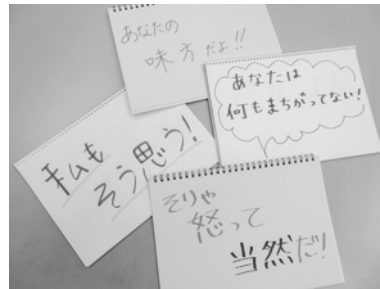 あなたの
味方だよ!!
あなたは
何もまちがってない!
私も
そう思う!
そりゃ
怒って
当然だ!